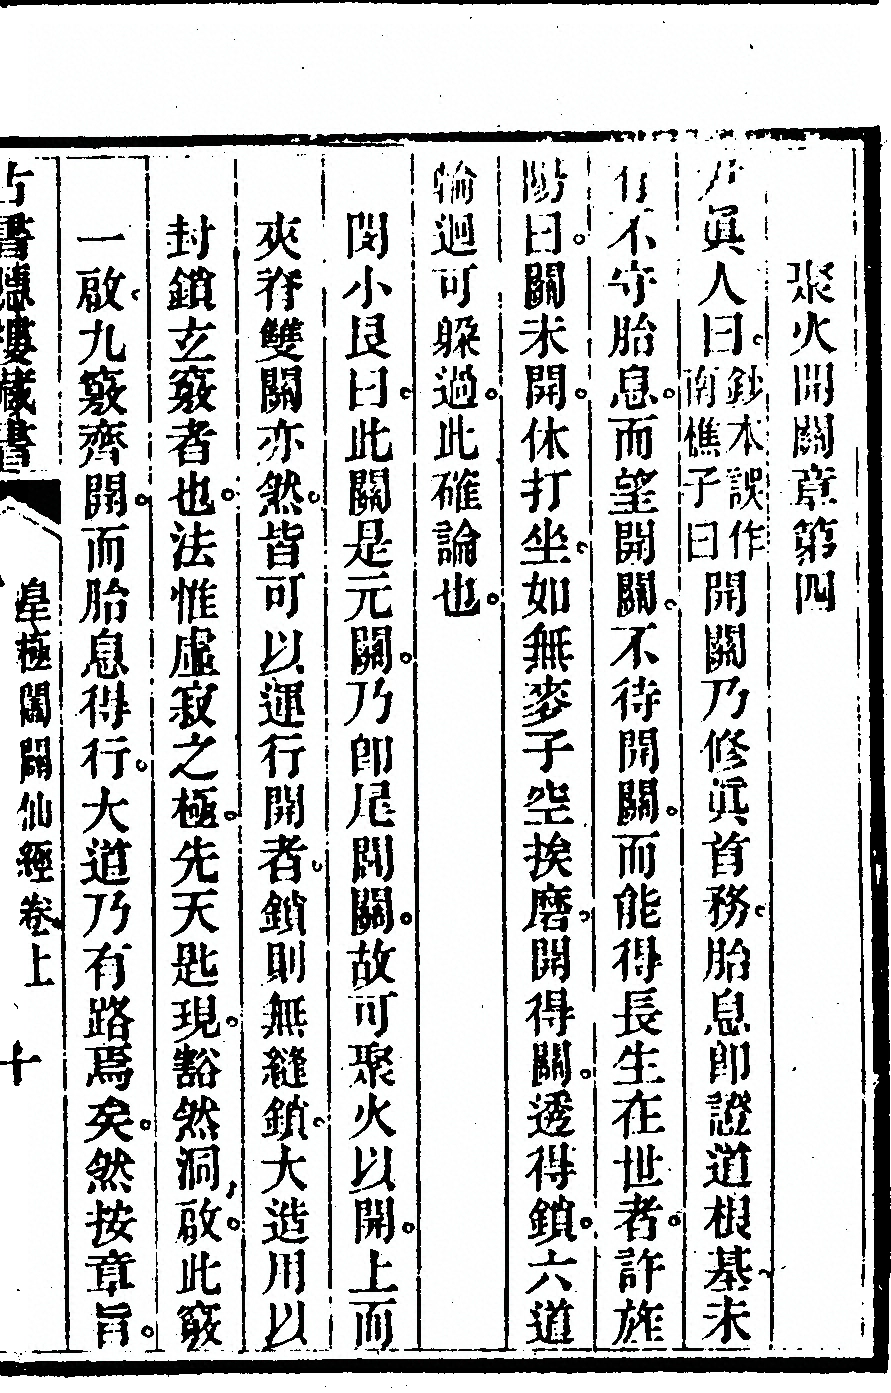 聚火開關章第四
尹眞人曰。鈔本誤作南樵子曰開關乃修眞首務。胎息即證道根基。未
有不守胎息。而望開關。不待開關。而能得長生在世者。許旌
陽曰。關未開。休打坐。如無麥子空挨磨。開得關。透得鎖。六道
輪迴可躲過。此確論也。
閔小艮曰。此關是元關。乃即尾閭關。故可聚火以開。上而
夾脊雙關亦然。皆可以運行開者。鎖則無縫鎖。大造用以
封鎖玄竅者也。法惟虛寂之極。先天匙現。豁然洞啟。此竅
一啟。九竅齊開。而胎息得行。大道乃有路焉矣。然按章旨。
古書隱樓藏書
皇極闔闢仙經卷上
十